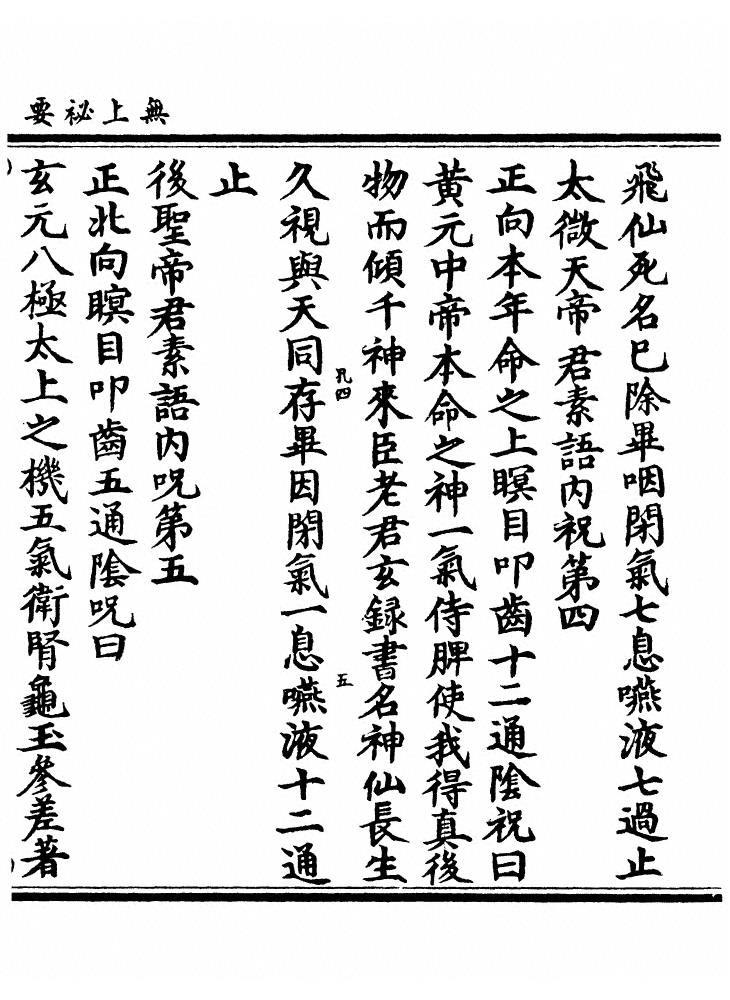 無上祕要
飛仙死名已除畢咽閉氣七息嚥液七過止
太微天帝君素語内祝第四
正向本年命之上瞑目叩齒十二通陰祝曰
黃元中帝本命之神一氣侍脾使我得真後
物而傾千神來臣老君玄録書名神仙長生
孔四
五
久視與天同存畢因閉氣一息嚥液十二通
止
後聖帝君素語内呪第五
正北向瞑目叩齒五通陰呪曰
玄元八極太上之機五氣衛腎龜玉參差著